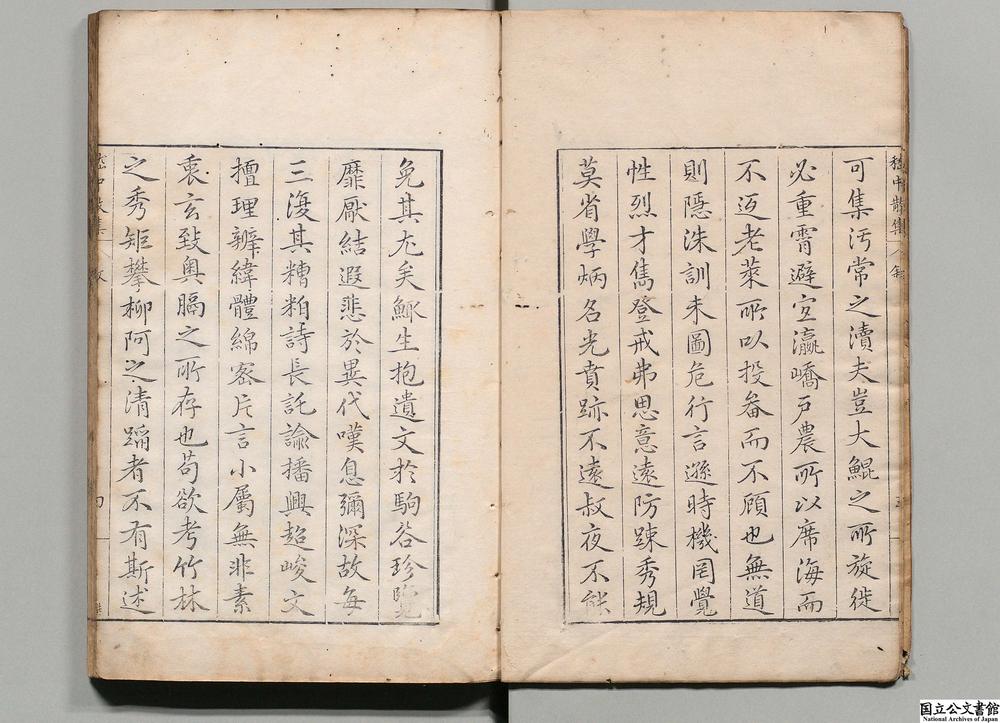 嵇中散集 叙
可集汚常之瀆夫豈大鯤之所旋徙
必重霄避宜瀛嶠戸農所以席海而
不返老萊所以投畚而不顧也無道
則隠洙訓未圖危行言遜時機罔覺
性烈才雋登戒弗思意遠防踈秀規
莫省學炳名光賁跡不遠叔夜不能
免其尤矣鯫生抱遺文於駒谷珍覽
靡厭結遐悲於異代嘆息彌深故每
三復其糟粕詩長託諭播興超峻文
擅理辨緯體綿密片言小屬無非素
衷玄致奥膈之所存也苟欲考竹林
之秀矩攀柳阿之清躅者不有斯述
中散集
国立公文書館
National Archives of Japan